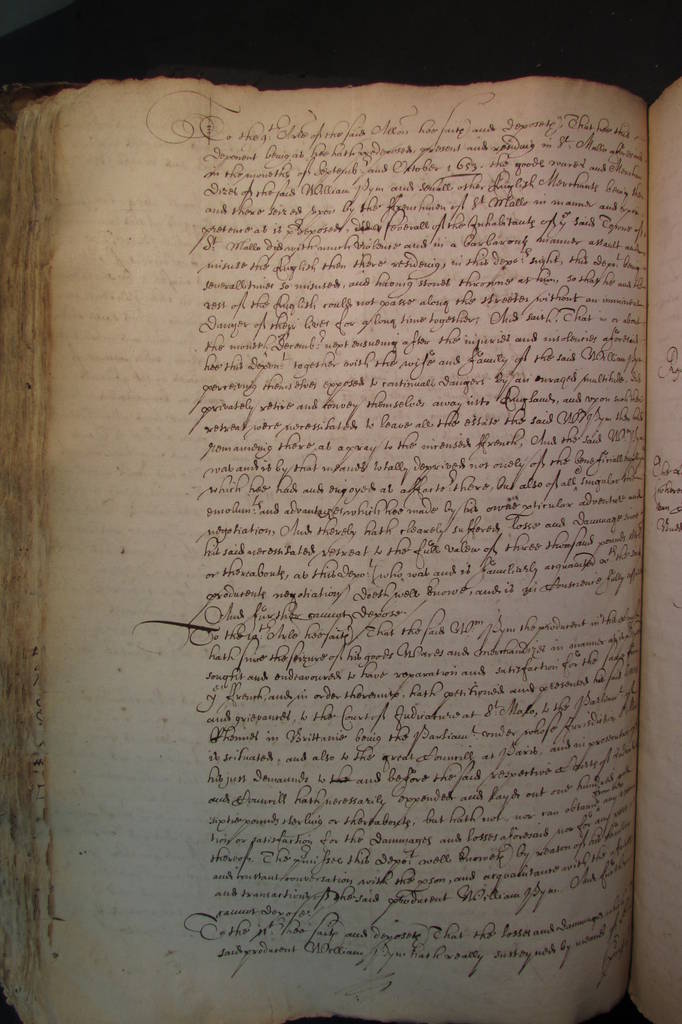 To the 9th Arle of the said Allon hee saith and deposeth That hee this
deponent being as hee hath predeposed, present and residing in St. Mallo aforesaid
in the moneths of September and October 1653. the goods wares and Merchan
dizes of the said William Pym and severall other English Merchants being then
and there seized upon by the Frenchmen of St Mallo in manner and upon
pretence as is predeposed, severall of the Inhabitants of ye said Towne of
St. Mallo did with much violence and in a barbarous manner assault and
misuse the English then there residing, in this depots sight, this depot being
severall times so misused, and having stones throwne at him, so that hee and the
rest of the English could not passe along the streetes without an imminent
danger of their lives for a long time together; And saith That in or about
the moneth Decembr next ensueing after the injuries and insolencies aforesaid
hee this depont together with the wife and family of the said William Pym
perceiving themselves exposed to continuall dangers by an enraged multitude, did
privately retire and convey themselves away into England, and upon such their
retreat were necessitated to leave all the estate the said Wm Pym then had
remaineing there as a pray to the incensed French, And the said Wm Pym
was and is by that meanes totally deprived not onely of the benefitt
which hee had and enjoyed as a ffactor there, but also of all singular the
emolumts and advantages which hee made by his owne pticular adventure and
negotiation, And thereby hath clearely suffered losse and dammage
his said necessitated retreat to the full valew of three thousand pounds
or thereabouts, as this depot (who was and is familiarly acquainted with the said
producents negotiation) doeth well knowe, and is in Conscience fully
And further cannot depose.
To the 10th Arle hee saith That the said Wm Pym the producent in this
hath since the seizure of his goods Wares and merchandizes in manner
sought and endeavoured to have reparation and satisfaction for the same from
ye French, and in order thereunto, hath petitioned and presented his said
and grievances, to the Court of Judicature at St Malo, to the Parliamt of
Rhennes in Brittanie being the Parliamt under whose Jurisdiction St Malo
is scituated, and also to the great Councill at Paris, and in prosecution of
his just demaunds to and before the said respective Courts of
and Councill hath necessarily expended and layed out one hundred and
sixtie pounds sterling or thereabouts, but hath not, nor can obtaine any
tion or satisfaction for the dammages and losses aforesaid nor for any
thereof. The premisses this depot well knoweth by reason of his
and constant conversation with the pson, and acquaintance with the
and transactions of the said producent William Pym. And further
cannot depose.
To the 11th hee saith and deposeth That the losses and dammage
said producent William Pym hath really susteyned by meanes of